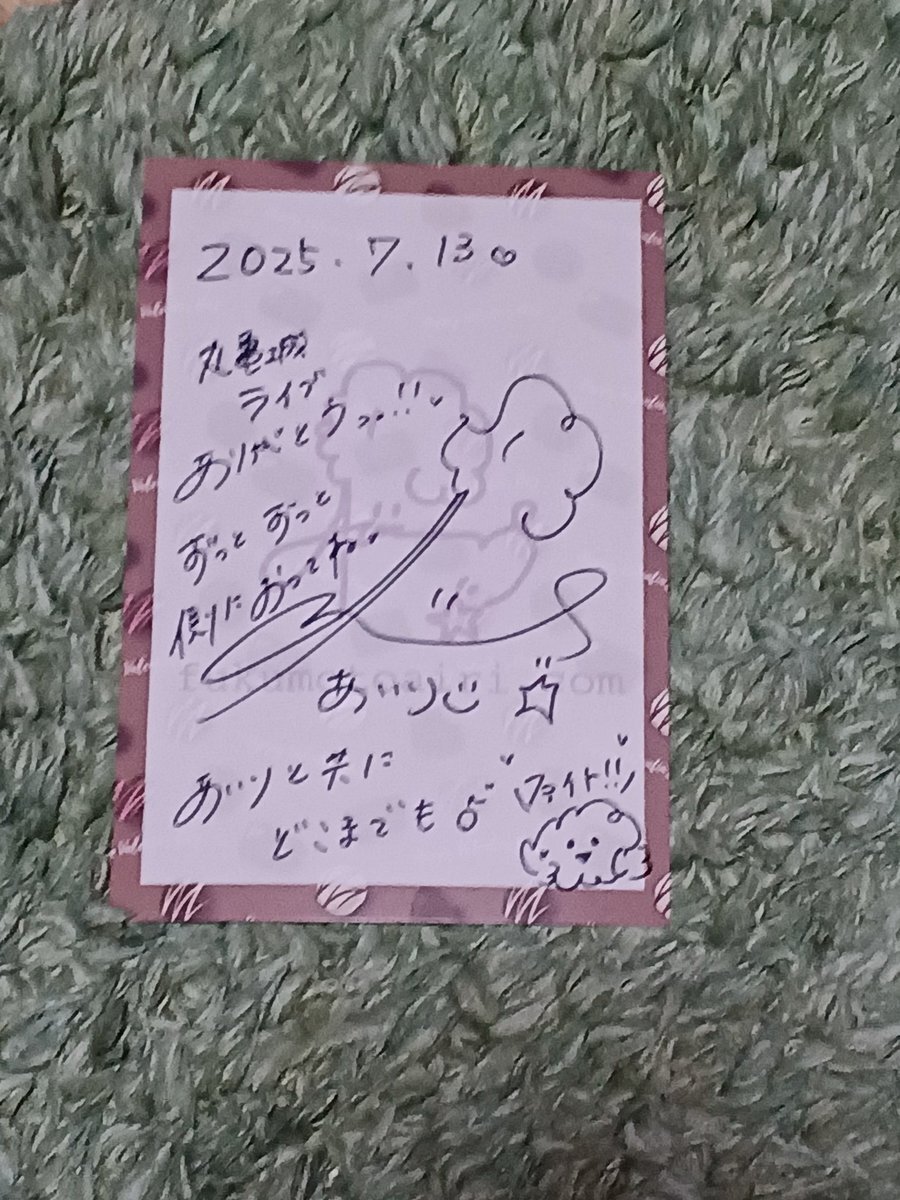 2025.7.13
丸亀城
ライブ
ありがとうっ!!
ずっとずっと
側におってね
fukumotoairi.com
あいり
あいりと共に
どこまでも
ファイト!!